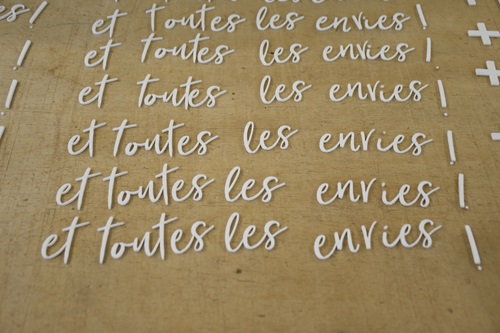 et toutes les envies !
et toutes les envies !
et toutes les envies !
et toutes les envies !
et toutes les envies !
et toutes les envies !